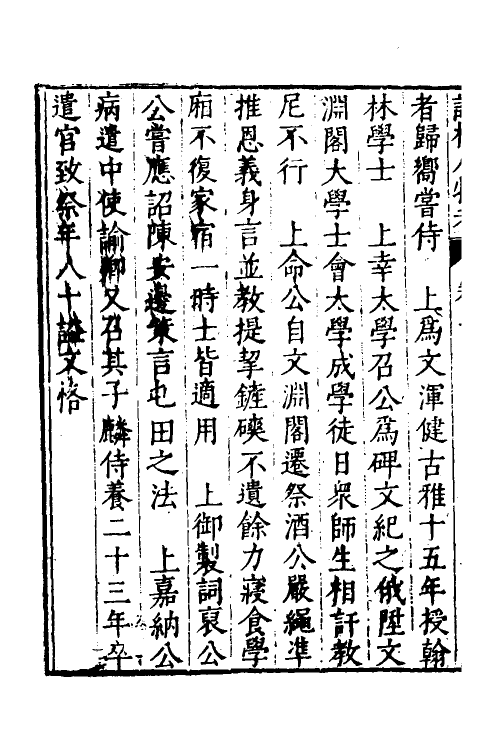 者歸嚮嘗侍　上爲文渾健古雅十五年授翰
林學士　上幸太學召公爲碑文紀之俄陞文
淵閣大學士會太學成學徒日衆師生相訐教
尼不行　上命公自文淵閣遷祭酒公嚴繩準
推恩義身言並教提挈鏟磢不遺餘力寢食學
廂不復家宿一時士皆適用　上御製詞裒公
公嘗應詔陳安邊策言屯田之法　上嘉納公
病遣中使諭卿又召其子麟侍養二十三年卒
遣官致祭年八十諡文恪